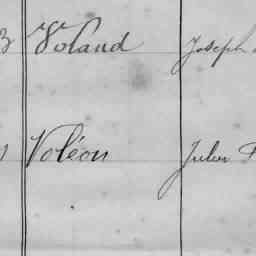 3 Voland Joseph
Voléon Jules